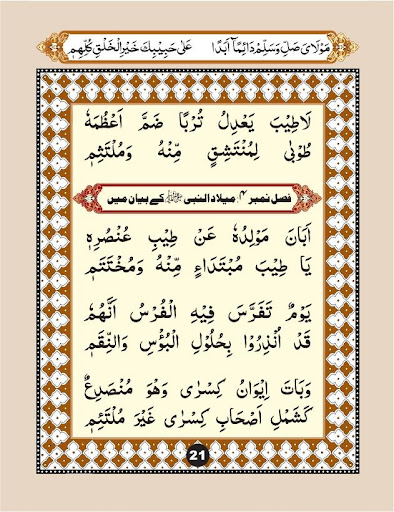 مَوْلَاىَ صَلِّ وَسَلِّمْ دَائِمًا اَبَدًا عَلٰى حَبِيْبِكَ خَيْرِ الْخَلْقِ كُلِّهِمٖ
لَاطِيْبَ يَعْدِلُ تُرْبًا ضَمَّ اَعْظُمَهٗ
طُوْبٰى لِمُنْتَشِقٍ مِّنْهُ وَمُلْتَثِمٖ
فصل نمبر ۴، میلاد النبی ﷺ کے بیان میں
اَبَانَ مَوْلِدُهٗ عَنْ طِيْبِ عُنْصُرِهٖ
يَا طِيْبَ مُبْتَدَاءٍ مِّنْهُ وَمُخْتَتَمٖ
يَوْمٌ تَفَرَّسَ فِيْهِ الْفُرْسُ اَنَّهُمٗ
قَدْ اُنْذِرُوْا بِحُلُوْلِ الْبُؤْسِ وَالنِّقَمٖ
وَبَاتَ اِيْوَانُ كِسْرٰى وَهُوَ مُنْصَدِعٌ
كَشَمْلِ اَصْحَابِ كِسْرٰى غَيْرَ مُلْتَئِمٖ
21